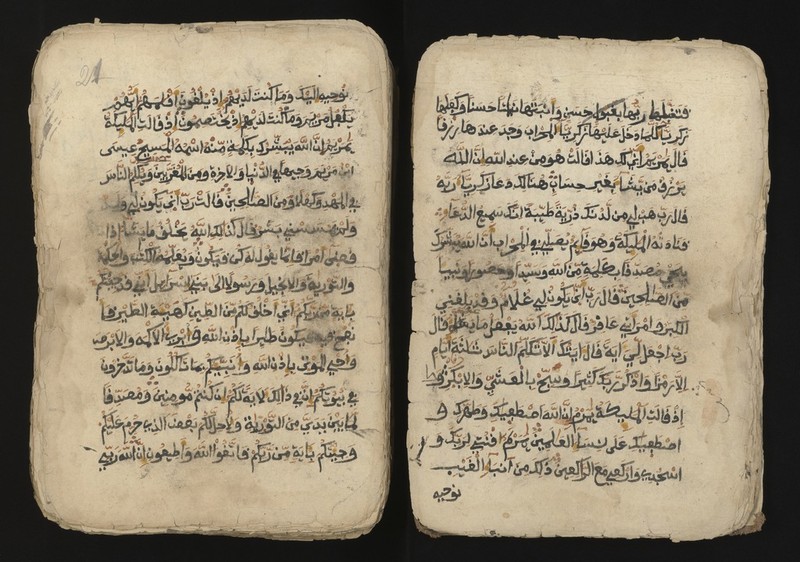 فتقبلها ربها بقبول حسن وانبتها نباتا حسنا وكفلها
زكريا كلما دخل عليها زكريا المحراب وجد عندها رزقا
قال يمريم اني لك هذا قالت هو من عند الله ان الله
يرزق من يشا بغير حساب هنالك دعا زكريا ربه
قال رب هب لي من لدنك ذرية طيبة انك سميع الدعا
فنادته المليكة وهو قايم يصلي في المحراب ان الله يبشرك
بيحيى مصدقا بكلمة من الله وسيدا وحصورا ونبيا
من الصلحين قال رب انى يكون لي غلام وقد بلغني
الكبر وامراتي عاقر قال كذلك الله يفعل ما يشا قال
رب اجعل لي اية قال ايتك الا تكلم الناس ثلثة ايام
الا رمزا واذكر ربك كثيرا وسبح بالعشي والابكر و
اذ قالت المليكة يمريم ان الله اصطفيك وطهرك و
اصطفيك على نسا العلمين يمريم اقنتي لربك و
اسجدي واركعي مع الراكعين ذلك من انبا الغيب
نوحيه
21
نوحيه اليك وما كنت لديهم اذ يلقون اقلمهم ايهم
يكفل مريم وما كنت لديهم اذ يختصمون اذ قالت المليكة
يمريم ان الله يبشرك بكلمة منه اسمه المسيح عيسى
ابن مريم وجيها في الدنيا والاخرة ومن المقربين ويكلم الناس
في المهد وكهلا ومن الصالحين قالت رب انى يكون لي ولد
ولم يمسسني بشر قال كذلك الله يخلق ما يشا اذا
قضى امرا فانما يقول له كن فيكون ويعلمه الكتب والحكمة
والتورية والانجيل ورسولا الى بني اسرايل اني قد جيتكم
باية من ربكم اني اخلق لكم من الطين كهيية الطير فا
نفخ فيه فيكون طايرا باذن الله وابري الاكمه والابرص
واحي الموتى باذن الله وانبيكم بما تاكلون وما تدخرون
في بيوتكم ان في ذالك لاية لكم ان كنتم مومنين ومصدقا
لما بين يدي من التورية ولاحل لكم بعض الذي حرم عليكم
وجيتكم باية من ربكم فاتقوا الله واطيعون ان الله ربي